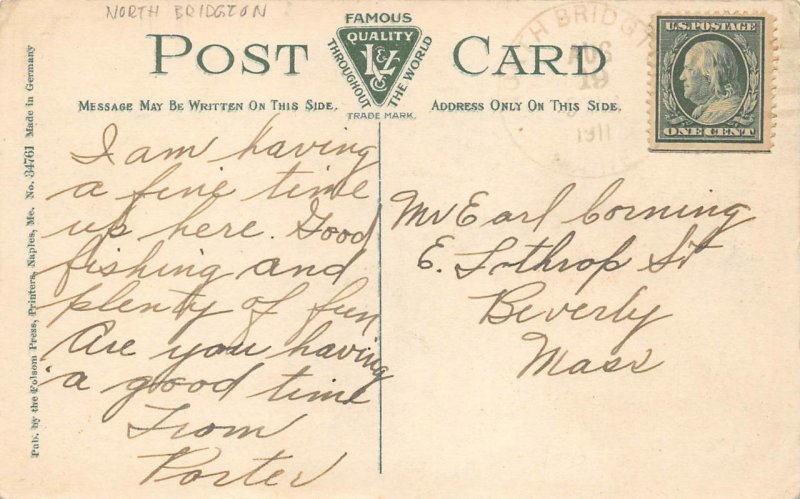 NORTH BRIDGTON
FAMOUS
QUALITY
THROUGHOUT THE WORLD
TRADE MARK.
POST CARD
MESSAGE MAY BE WRITTEN ON THIS SIDE.
ADDRESS ONLY ON THIS SIDE.
BRIDGT
AUG
19
1911
U.S. POSTAGE
ONE CENT
Pub. by the Folsom Press, Printers, Naples, Me. No. 34761 Made in Germany
I am having
a fine time
up here. Good
fishing and
plenty of fun
Are you having
a good time
From
Porter
Mr Earl Corning
E. Lothrop St
Beverly
Mass